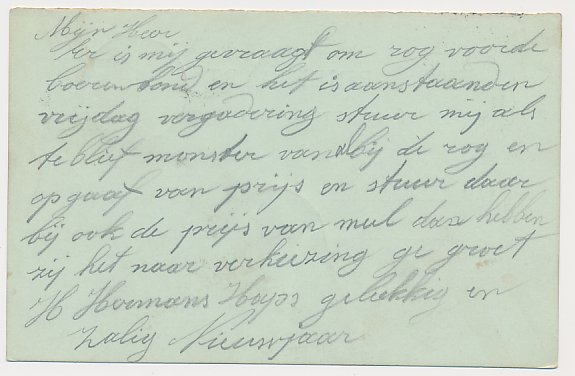 Mijn Heer
Er is mij gevraagt om rog voor de
boerenbond en het is aanstaanden
vrijdag vergadering stuur mij als
te blief monster van bij de rog en
op gaaf van prijs en stuur daar
bij ook de prijs van mul dan hebben
zij het naar verkeizing ge groet
H Hermans Hays gelukkig en
zalig Nieuwjaar